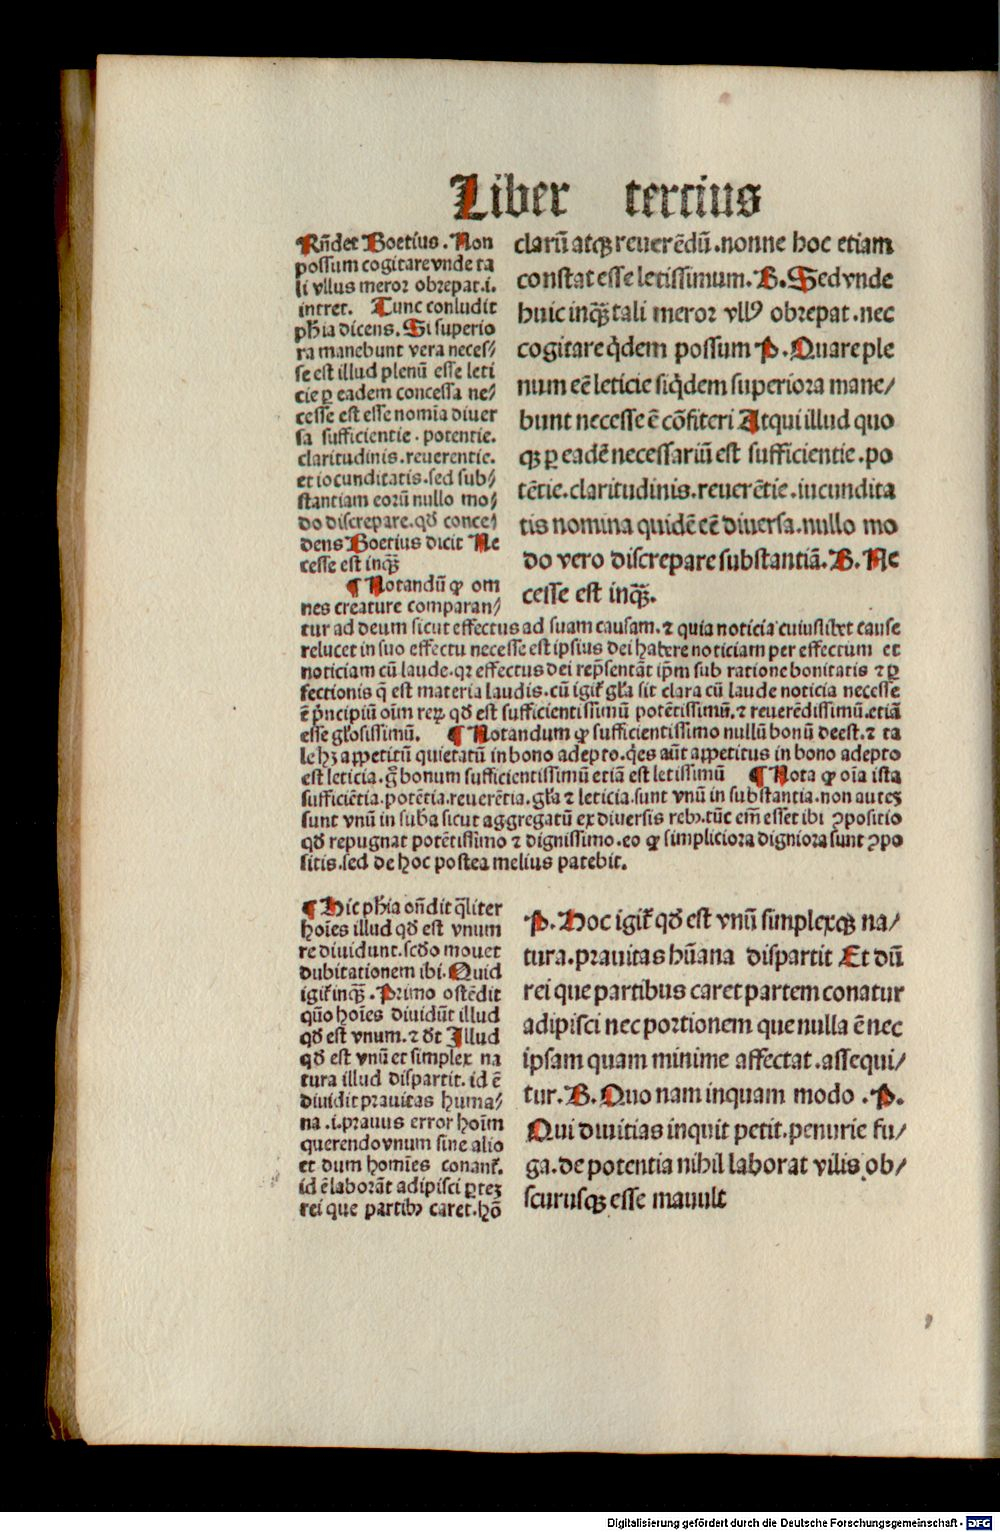 Liber tertius
Rñdet Boetius. Non
possum cogitare vnde ta
li vllus meror obrepat.i.
intret. Tunc conludit
pħia dicens. Si superio
ra manebunt vera neces/
se est illud plenū esse leti
cie ꝑ eadem concessa ne/
cesse est esse nomīa diuer
sa sufficientie. potentie.
claritudinis. reuerentie.
et iocunditatis. sed sub/
stantiam eorū nullo mo/
do discrepare. qđ conce/
dens Boetius dicit Ne
cesse est inqꝫ
¶ Notandū ꝙ om
nes creature comparan/
clarū atqꝫ reuerēdū. nonne hoc etiam
constat esse letissimum. B. Sed vnde
huic inqꝫ tali meror vllꝰ obrepat. nec
cogitare q̇dem possum P. Quare ple
num eē leticie siq̇dem superiora mane/
bunt necesse ē cōfiteri Atqui illud quo
qꝫ ꝑ eadē necessariū est sufficientie. po
tētie. claritudinis. reuerētie. iucundita
tis nomina quidē eē diuersa. nullo mo
do vero discrepare substantiā. B. Ne
cesse est inqꝫ.
tur ad deum sicut effectus ad suam causam. ⁊ quia noticia cuiuslibet cause
relucet in suo effectu necesse est ipsius dei habere noticiam per effectum et
noticiam cū laude. qꝛ effectus dei rep̄sentāt ip̄m sub ratione bonitatis ⁊ ꝑ
fectionis q̄ est materia laudis. cū igit̄ gl̄a sit clara cū laude noticia necesse
ē p̄ncipiū oīm reꝝ qđ est sufficientissimū potētissimū. ⁊ reuerēdissimū. etiā
esse gl̄osissimū. ¶ Notandum ꝙ sufficientissimo nullū bonū deest. ⁊ ta
le hꝫ appetitū quietatū in bono adepto. q̇es aūt appetitus in bono adepto
est leticia. g̊ bonum sufficientissimū etiā est letissimū ¶ Nota ꝙ oīa ista
sufficiētia. potētia. reuerētia. gl̄a ⁊ leticia. sunt vnū in substantia. non auteꝫ
sunt vnū in sub̄a sicut aggregatū ex diuersis rebꝰ. tūc em̄ esset ibi ꝯpositio
qđ repugnat potētissimo ⁊ dignissimo. eo ꝙ simpliciora digniora sunt ꝯpo
sitis. sed de hoc postea melius patebit.
¶ Hic pħia oñdit q̄liter
hoīes illud qđ est vnum
re diuidunt. scđo mouet
dubitationem ibi. Quid
igit̄ inqꝫ. Primo ostēdit
quō hoīes diuidūt illud
qđ est vnum. ⁊ đt Illud
qđ est vnū et simplex na
tura illud dispartit. id ē
diuidit prauitas huma/
na .i. prauus error hoīm
querendo vnum sine alio
et dum homīes conant̄.
id ē laborāt adipisci ꝑteꝫ
rei que partibꝰ caret. hō
P. Hoc igit̄ qđ est vnū simplexqꝫ na/
tura. prauitas hūana dispartit Et dū
rei que partibus caret partem conatur
adipisci nec portionem que nulla ē nec
ipsam quam minime affectat. assequi/
tur. B. Quo nam inquam modo. P.
Qui diuitias inquit petit. penurie fu/
ga. de potentia nihil laborat vilis ob/
scurusqꝫ esse mauult
Digitalisierung gefördert durch die Deutsche Forschungsgemeinschaft - DFG